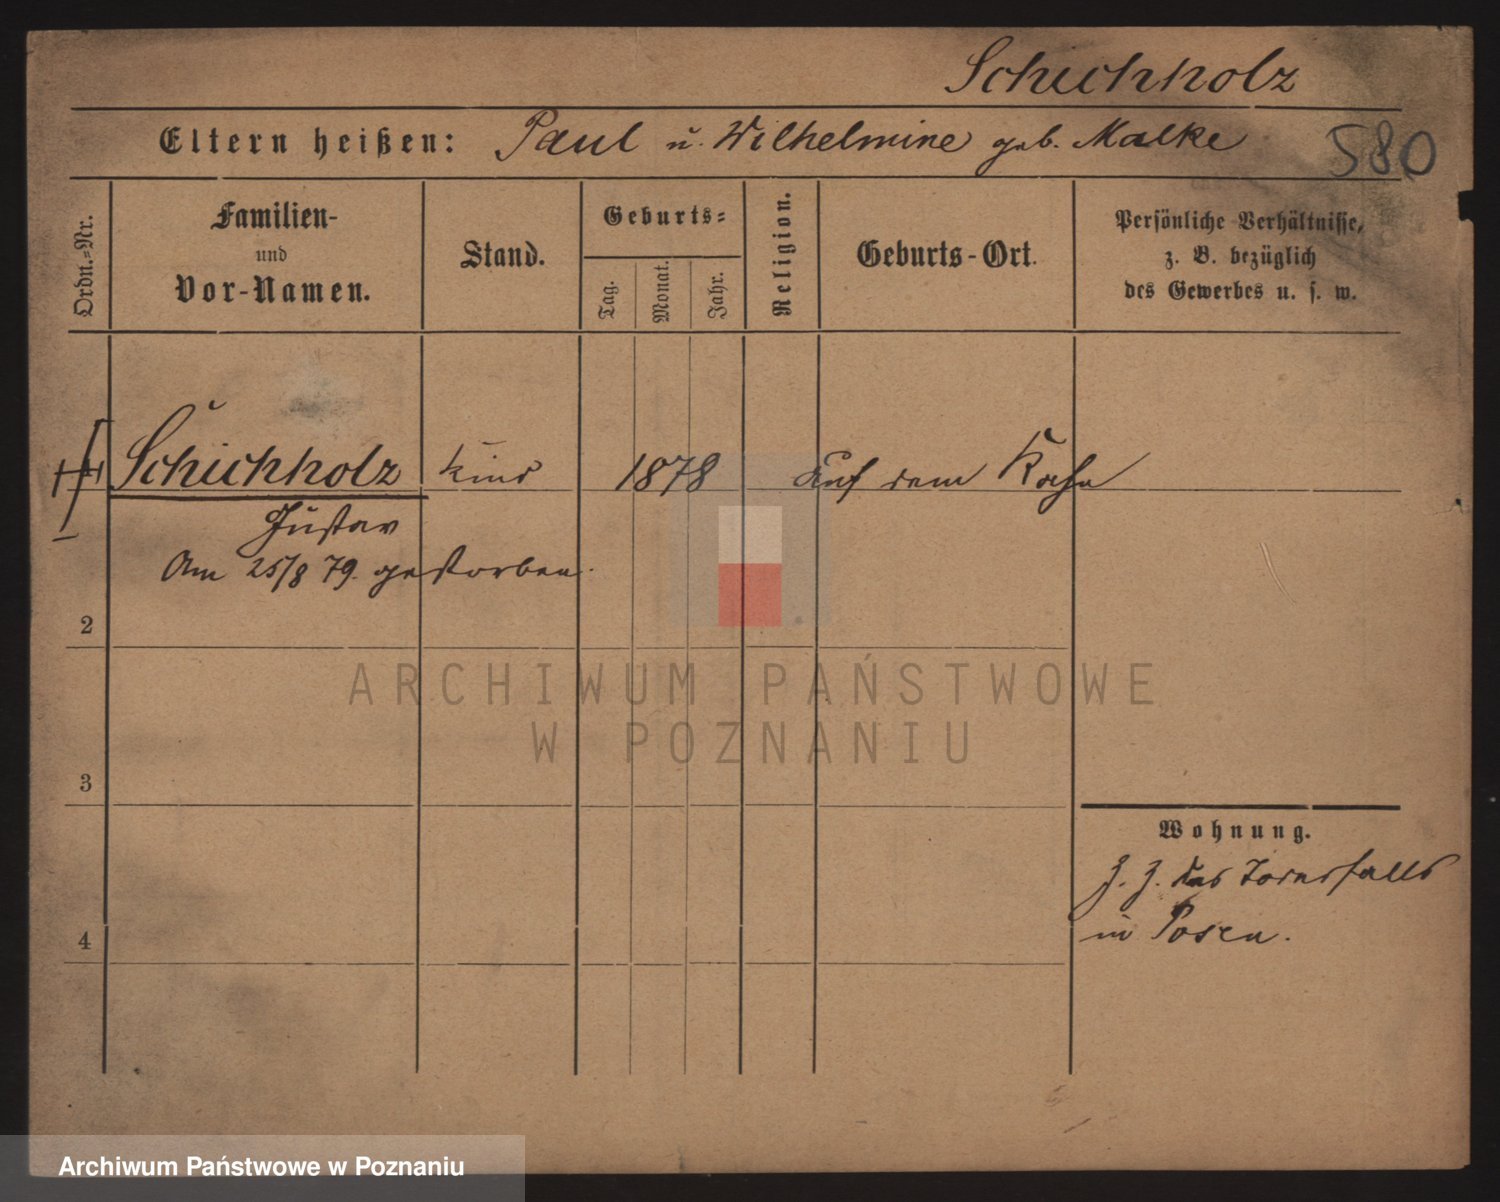 Schichholz
Eltern heißen: Paul u. Wilhelmine geb. Malke 580
Ordn.-Nr.
Familien-
und
Vor-Namen.
Stand.
Geburts-
Tag.
Monat.
Jahr.
Religion.
Geburts-Ort.
Persönliche Verhältnisse,
z. B. bezüglich
des Gewerbes u. s. w.
Schichholz Kind 1878 Auf dem Kahn
Gustav
Am 25/8 79. gestorben.
2
3
4
Wohnung.
z. Z. des Todesfalls
in Posen.
ARCHIWUM PAŃSTWOWE
W POZNANIU
Archiwum Państwowe w Poznaniu